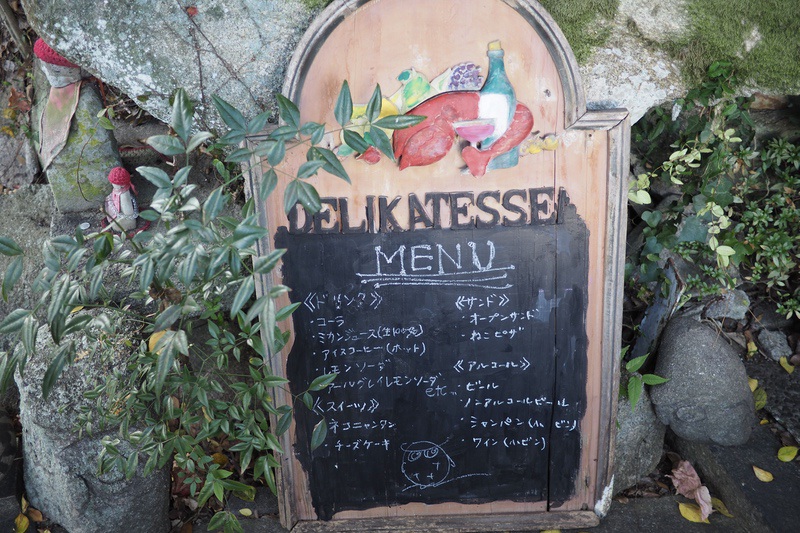 DELIKATESSE
MENU
《ドリンク》
・コーラ
・ミカンジュース
・アイスコーヒー(ホット)
・レモンソーダ
アールグレイレモンソーダ
etc...
《スイーツ》
ネコニャンタン
・チーズケーキ
《サンド》
・オープンサンド
・ねこピザ
《アルコール》
・ビール
・ノンアルコールビール
・シャンパン(小ビン)
・ワイン(小ビン)